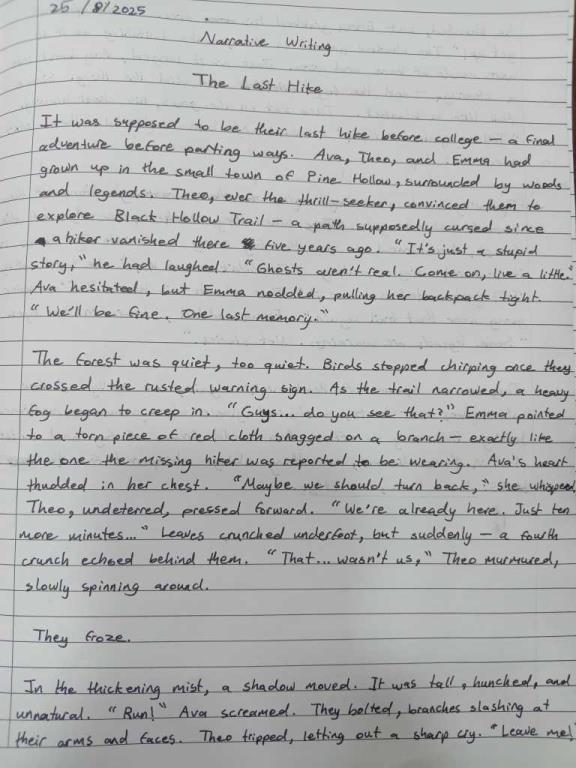 25/8/2025
Narrative Writing
The Last Hike
It was supposed to be their last hike before college – a final
adventure before parting ways. Ava, Theo, and Emma had
grown up in the small town of Pine Hollow, surrounded by woods
and legends. Theo, ever the thrill-seeker, convinced them to
explore Black Hollow Trail – a path supposedly cursed since
a hiker vanished there five years ago. "It's just a stupid
story," he had laughed. "Ghosts aren't real. Come on, live a little."
Ava hesitated, but Emma nodded, pulling her backpack tight.
"We'll be fine. One last memory."
The forest was quiet, too quiet. Birds stopped chirping once they
crossed the rusted warning sign. As the trail narrowed, a heavy
fog began to creep in. "Guys... do you see that?" Emma pointed
to a torn piece of red cloth snagged on a branch – exactly like
the one the missing hiker was reported to be wearing. Ava's heart
thudded in her chest. "Maybe we should turn back," she whispered.
Theo, undeterred, pressed forward. "We're already here. Just ten
more minutes..." Leaves crunched underfoot, but suddenly – a fourth
crunch echoed behind them. "That... wasn't us," Theo murmured,
slowly spinning around.
They froze.
In the thickening mist, a shadow moved. It was tall, hunched, and
unnatural. "Run!" Ava screamed. They bolted, branches slashing at
their arms and faces. Theo tripped, letting out a sharp cry. "Leave me!